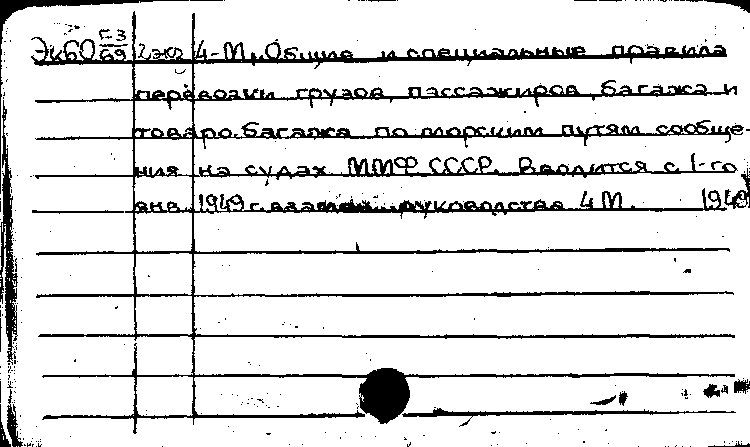 Эк60 Г3/69 2 экз 4-М, Общие и специальные правила
перевозки грузов, пассажиров, багажа и
товаро-багажа по морским путям сообще-
ния на судах ММФ СССР. Вводится с 1-го
янв. 1949 г. взамен руководства 4 М. 1949